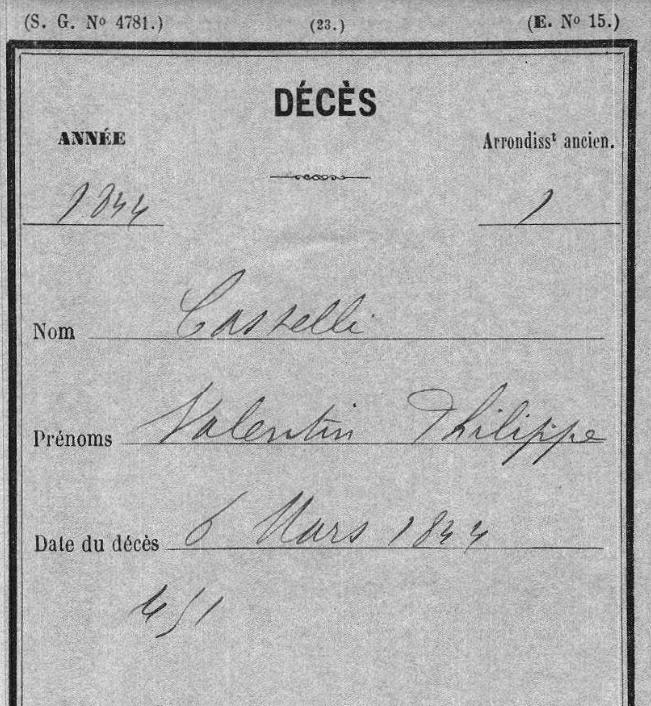 (S. G. Nº 4781.) (23.) (E. Nº 15.)
DÉCÈS
ANNÉE Arrondissᵗ ancien.
1844 1
Nom Castelli
Prénoms Valentin Philippe
Date du décès 6 Mars 1844
451